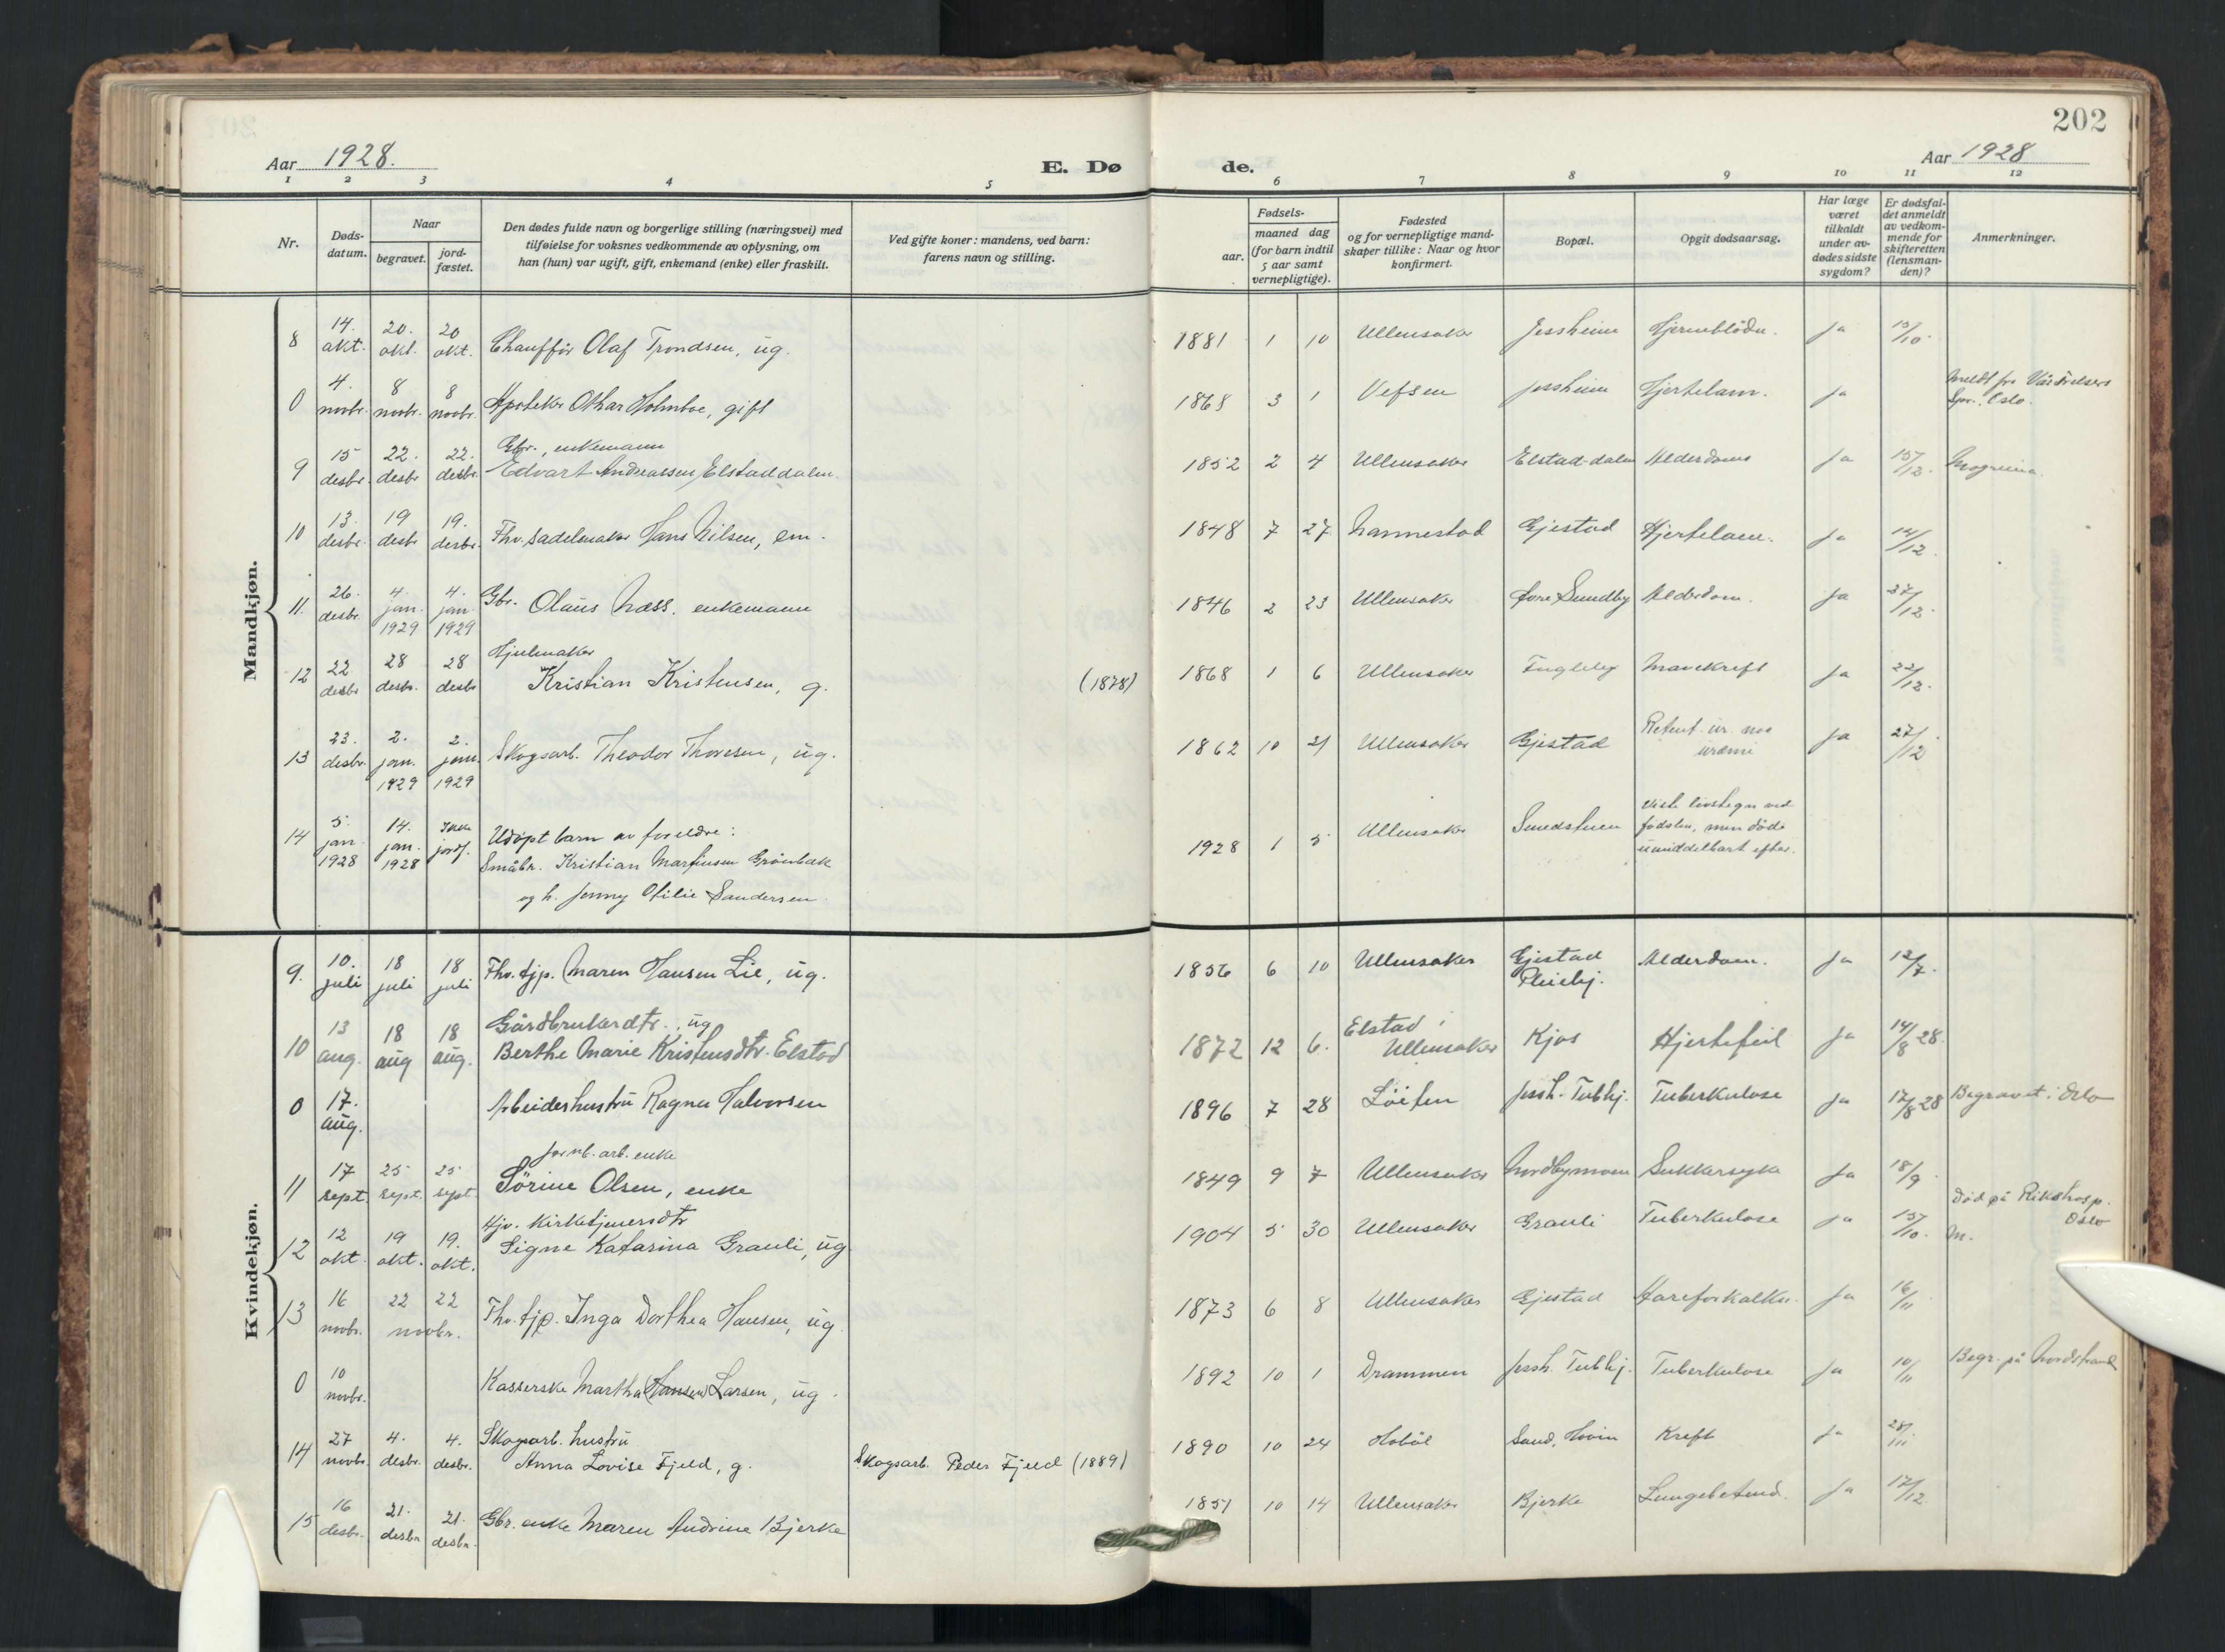 202
Aar 1928. E. Dø de. Aar 1928
1 2 3 4 5 6 7 8 9 10 11 12
Nr.
Døds-datum.
Naar
begravet.
jord-fæstet.
Den dødes fulde navn og borgerlige stilling (næringsvei) med
tilføielse for voksnes vedkommende av oplysning, om
han (hun) var ugift, gift, enkemand (enke) eller fraskilt.
Ved gifte koner: mandens, ved barn:
farens navn og stilling.
Fødsels-
aar.
maaned dag
(for barn indtil
5 aar samt
vernepligtige).
Fødested
og for vernepligtige mand-
skaper tillike: Naar og hvor
konfirmert.
Bopæl.
Opgit dødsaarsag.
Har læge
været
tilkaldt
under av-
dødes sidste
sygdom?
Er dødsfal-
det anmeldt
av vedkom-
mende for
skifteretten
(lensman-
den)?
Anmerkninger.
Mandkjøn.
8 14. okt. 20. okt. 20 okt. Chauffør Olaf Trondsen, ug. 1881 1 10 Ullensaker Jessheim Hjerneblödn. Ja 15/10
0 4. novbr. 8 novbr. 8 novbr. Apoteker Othar Holmboe, gift 1868 3 1 Vefsen Jessheim Hjertelam. Ja Meldt fra Vår Frelsers
Oslo.
9 15 desbr. 22. desbr 22. desbr. Gbr., enkemann
Edvart Andreassen Elstaddalen. 1852 2 4 Ullensaker Elstad-dalen Alderdoms Ja 15/12. Mogreina.
10 13. desbr. 19 desbr 19. desbr. Fhv. sadelmaker Hans Nilsen, em. 1848 7 27 Nannestad Gjestad Hjertelam. Ja 14/12.
11. 26. desbr. 4. jan. 1929 4. jan. 1929 Gbr. Olaus Næss. enkemann 1846 2 23 Ullensaker Sundby Alderdom. Ja 27/12.
12 22 desbr 28 desbr. 28 desbr Hjulmaker
Kristian Kristensen, g. (1878) 1868 1 6 Ullensaker Fugleley Mavekreft Ja 22/12.
13 23. desbr. 2. jan. 1929 2. jan. 1929 Skogsarb. Theodor Thoresen, ug. 1862 10 21 Ullensaker Gjestad Retent. ur. nos
uræmi Ja 27/12
14 5. jan 1928 14. jan. 1928 Ikke jordf. Udöpt barn av foreldre:
Småbr. Kristian Martinsen Grönbæk
og h. Jenny Otilie Sandersen. 1928 1 5 Ullensaker Smedstuen Viste livstegn ved
födslen, men döde
umiddelbart efter.
Kvindekjøn.
9. 10. juli 18 juli 18 juli Fhv. tjp. Maren Hansen Lie, ug. 1856 6 10 Ullensaker Gjestad
Pleiehj. Alderdom. Ja 12/7.
10 13 aug. 18 aug 18 aug. Gårdbrukerdtr., ug
Berthe Marie Kristensdtr. Elstad 1872 12 6. Elstad i
Ullensaker Kjos Hjertefeil Ja 14/8 28.
0 17. aug. Arbeiderhustru Ragna Halvorsen 1896 7 28 Löiten Jessh. Tubhj. Tuberkulose Ja 17/8 28 Begravet i Oslo
11 17 sept. 25 sept. 25 sept. jernb. arb. enke
Sörine Olsen, enke 1849 9 7 Ullensaker Nordbymoen Sukkersyke Ja 18/9.
12 12 okt. 19 okt. 19. okt. Hjv. Kirketjenersdtr
Signe Katarina Grauli, ug 1904 5 30 Ullensaker Grauli Tuberkulose Ja 15/10. Död på Rikshosp.
Oslo
M.
13 16 novbr. 22 22 novbr. Fhv. tjp. Inga Dorthea Hansen, ug. 1873 6 8 Ullensaker Gjestad Åreforkalkn. Ja 16/11
0 10 novbr. Kasserske Martha (Hansen) Larsen, ug. 1892 10 1 Drammen Jessh. Tubhj. Tuberkulose Ja 10/11 Begr. på Nordstrand
14 27 novbr. 4. desbr. 4. desbr. Skogsarb. hustru
Anna Lovise Fjeld, g. Skogsarb. Peder Fjeld (1889) 1890 10 24 Hobøl Sand, Hovin Kreft Ja 28/11
15 16 desbr. 21. desbr 21. desbr. Gbr. enke Maren Andrine Bjerke 1851 10 14 Ullensaker Bjerke Lungebetend. Ja 17/12.